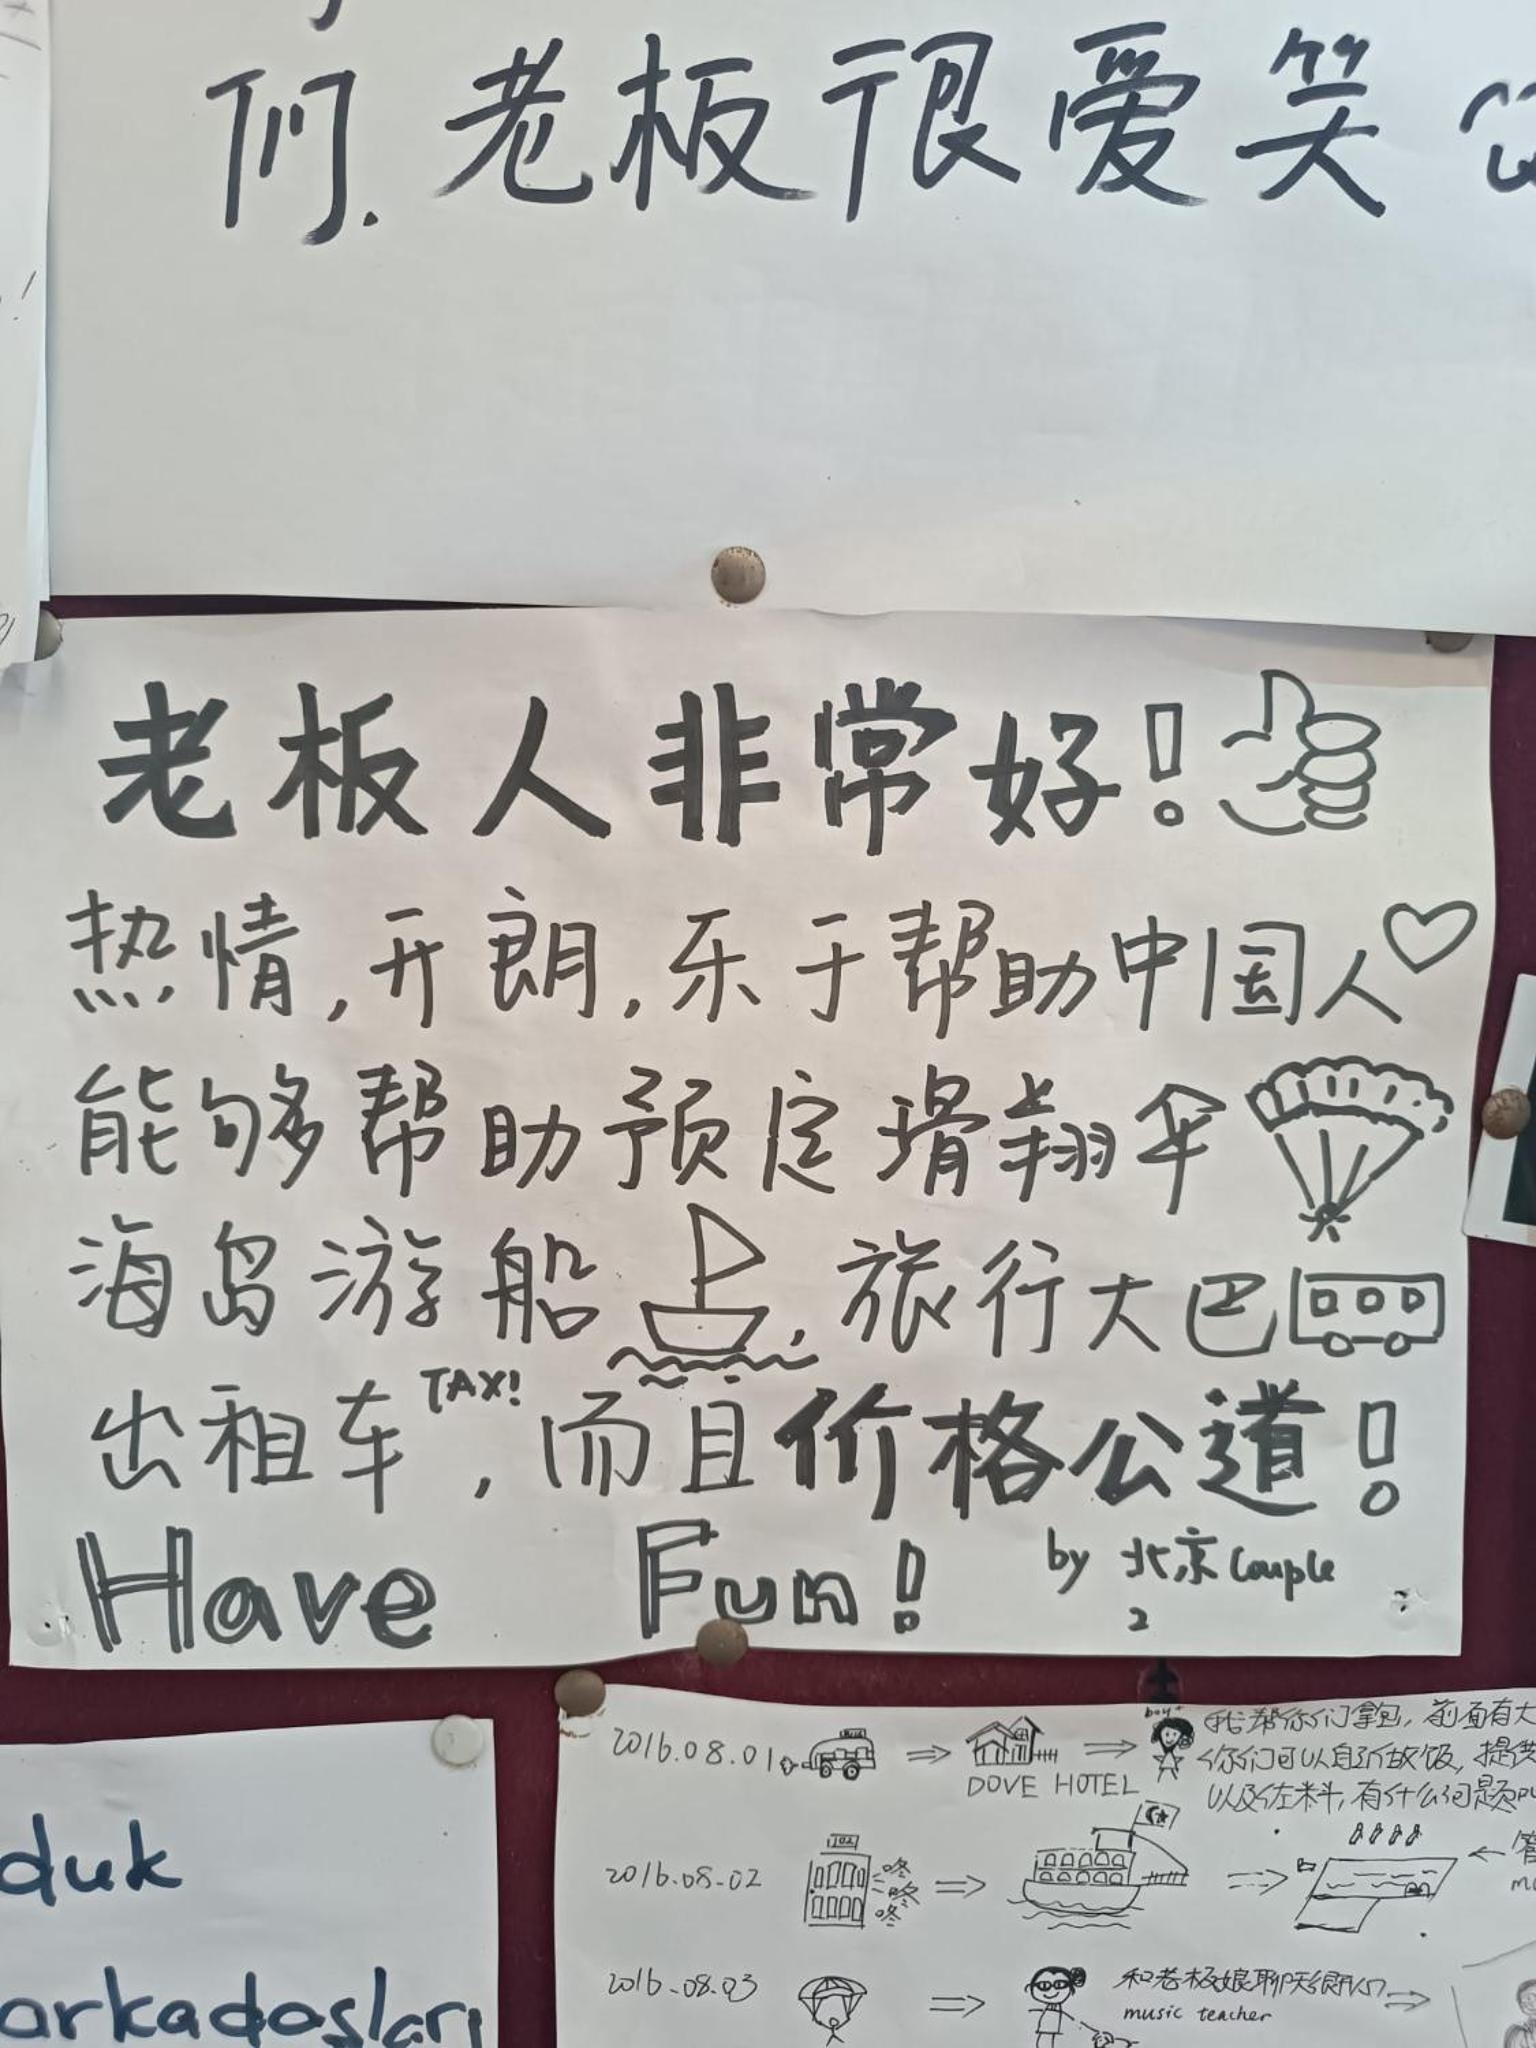 们.老板很爱笑
老板人非常好!
热情,开朗,乐于帮助中国人
能够帮助预定滑翔伞
海岛游船,旅行大巴
出租车TAXI,而且价格公道!
Have Fun! by 北京couple
2
2016.08.01
DOVE HOTEL
boy+
我帮你们拿包,前面有大
你们可以自己做饭,提供
以及佐料,有什么问题
2016.08.02
102
咚
咚
咚
2016.08.03
和老板娘聊天很开心
music teacher
duk
arkadaşları